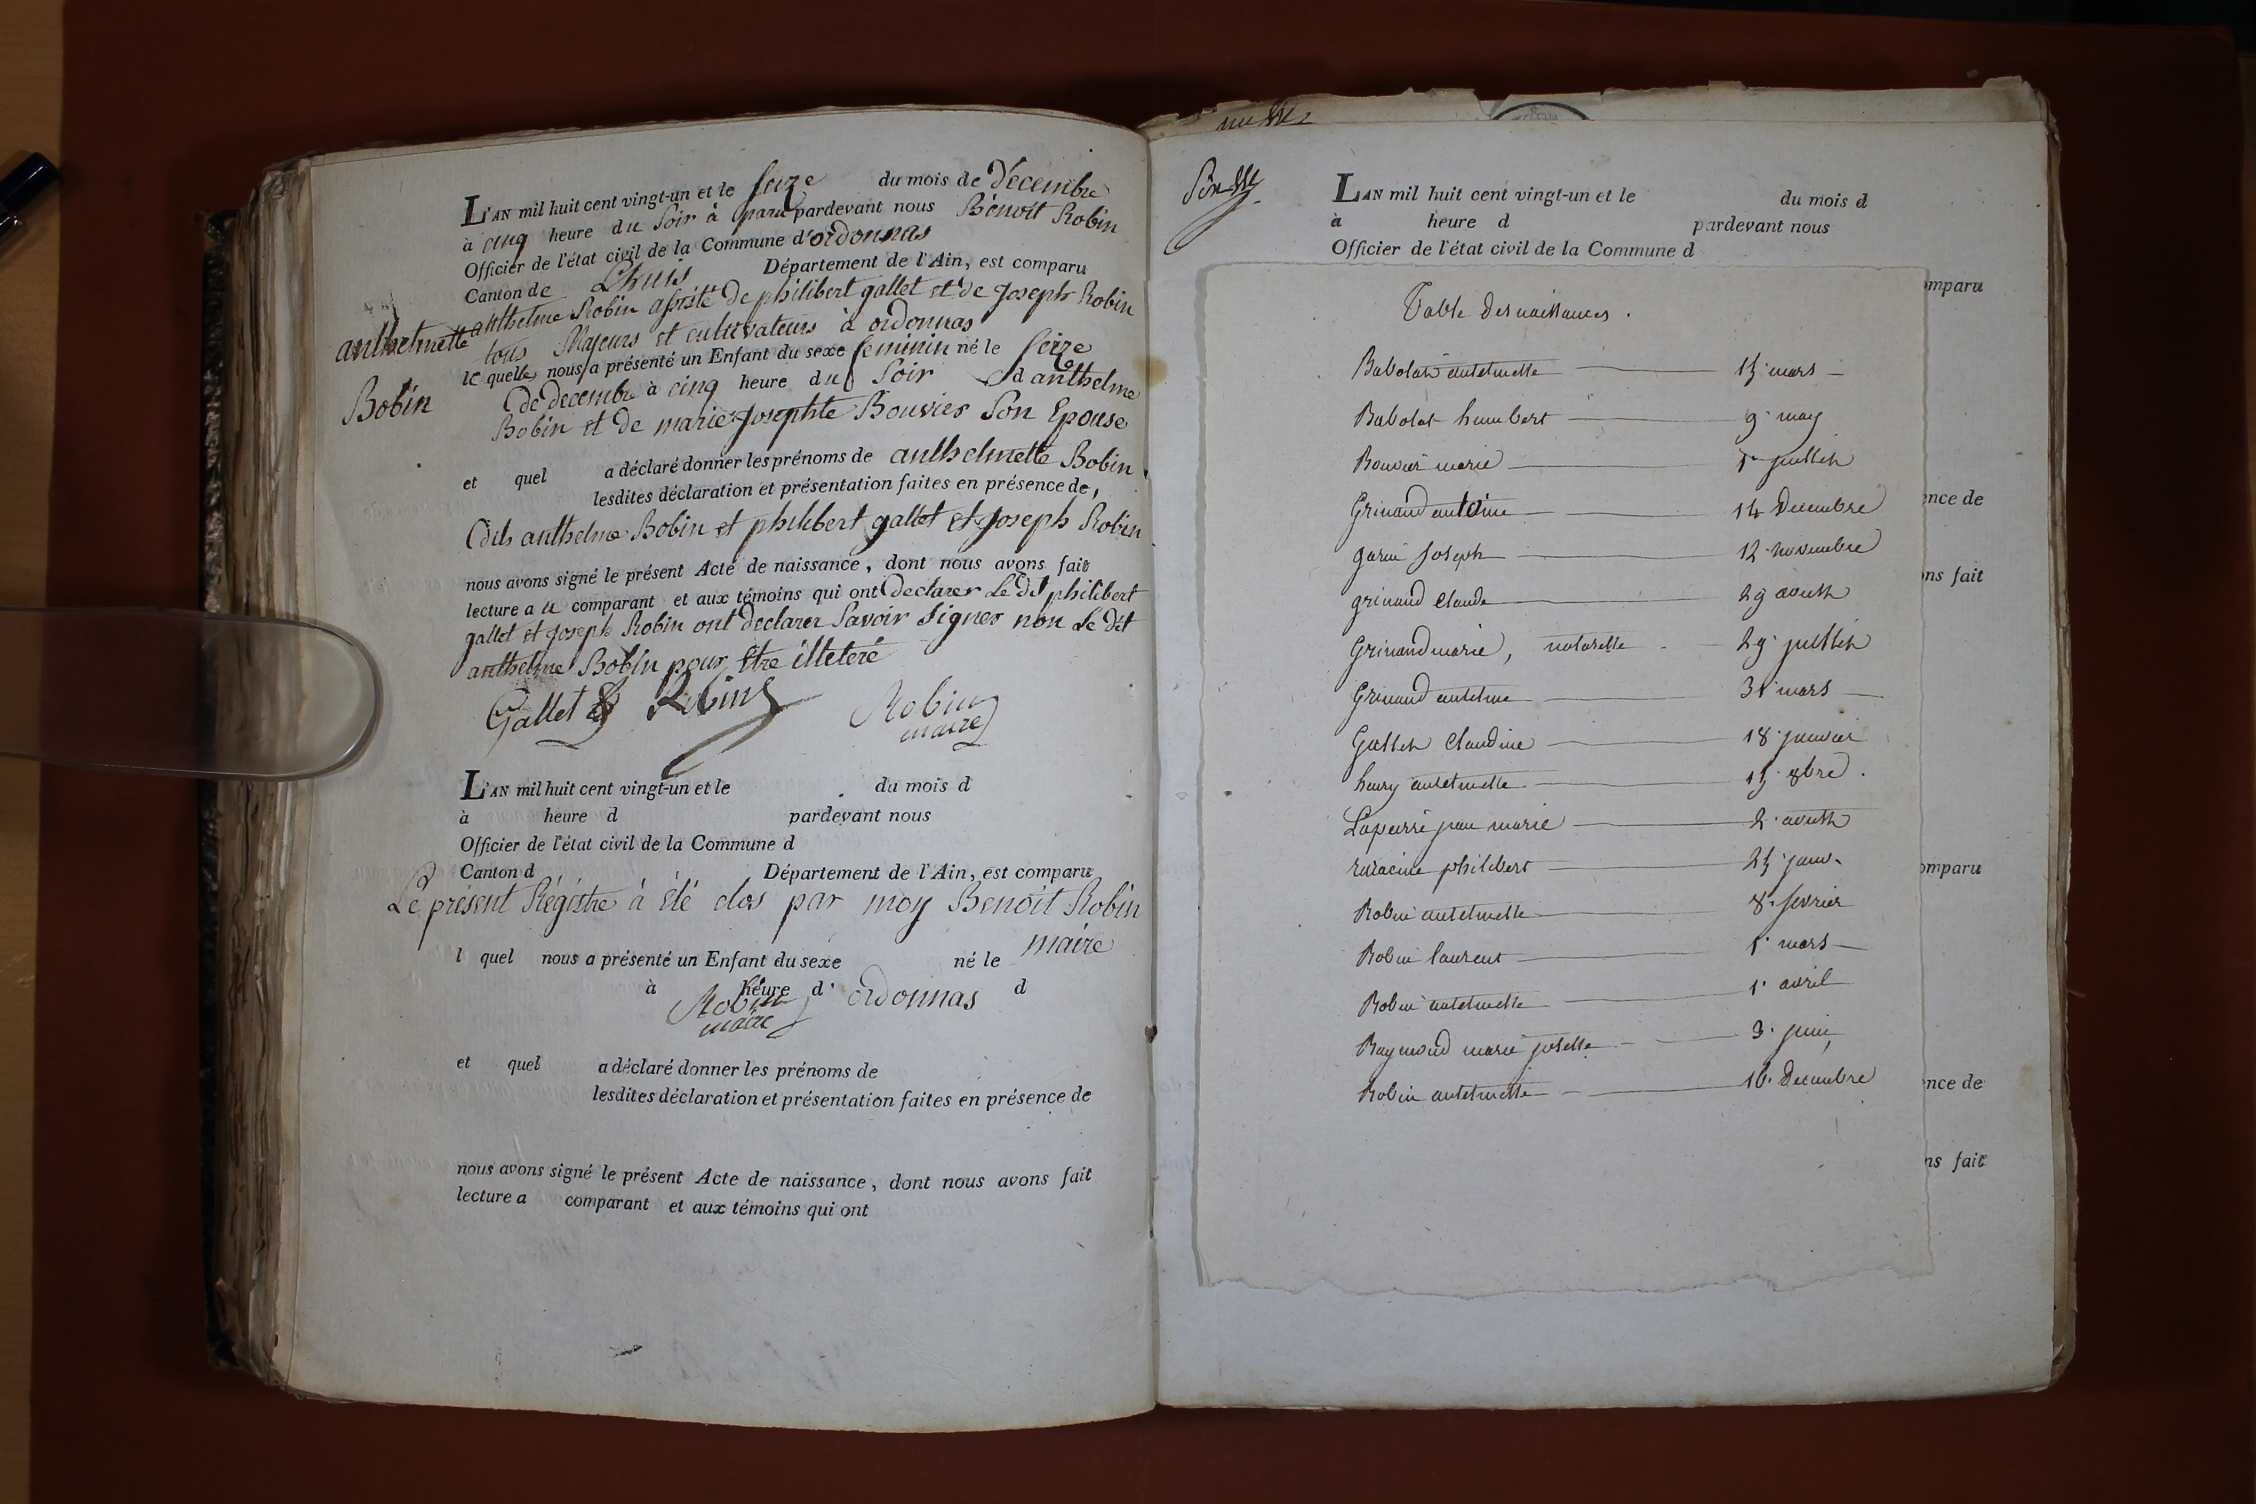 L'AN mil huit cent vingt-un et le seize du mois de decembre
à cinq heure du soir à paru pardevant nous Bénoit Robin
Officier de l'état civil de la Commune d'ordonnas
Canton de Lhuis Département de l'Ain, est comparu
anthelme Robin assisté de philibert gallet et de joseph Robin
tous Majeurs et cultivateurs à ordonnas
anthelmette
Bobin
le quelle nous a présenté un Enfant du sexe feminin né le seize
de decembre à cinq heure du soir d anthelme
Bobin et de marie josephte Bouvier son Epouse
et quel a déclaré donner les prénoms de anthelmette Bobin
lesdites déclaration et présentation faites en présence de,
Cdits anthelme Bobin et philibert gallet et joseph Robin
nous avons signé le présent Acte de naissance, dont nous avons fait
lecture a u comparant et aux témoins qui ont declarer Le dit philibert
gallet et joseph Robin ont declarer savoir signer non Le dit
anthelme Bobin pour Etre illeteré
Gallet Robin Robin
maire
L'AN mil huit cent vingt-un et le du mois d
à heure d pardevant nous
Officier de l'état civil de la Commune d
Canton d Département de l'Ain, est comparu
Le présent Régistre à été clos par moy Benoit Robin
maire
l quel nous a présenté un Enfant du sexe né le
à heure d' ordonnas d
Robin
maire
et quel a déclaré donner les prénoms de
lesdites déclaration et présentation faites en présence de
nous avons signé le présent Acte de naissance, dont nous avons fait
lecture a comparant et aux témoins qui ont
L'AN mil huit cent vingt-un et le du mois d
à heure d pardevant nous
Officier de l'état civil de la Commune d
omparu
Table des naissances.
Babolat antelmette 15 mars
Babolat humbert 9 may
Bouvier marie 1er juillet
Grinand antoine 14 Decembre
garin Joseph 12 novembre
ence de
grinand Claude 29 aoust
ons fait
Grinand marie, 29 juillet
Grinand antelme 31 mars
Gallet Claudine 18 janvier
henry antelmette 15 8bre.
Lapierre jean marie 2 aoust
philibert 25 janv.
omparu
Robin antelmette 8 fevrier
Robin laurent 1 mars
Robin antelmette 1 avril
Raymond marie josette 3 juin
Robin antelmette 16 Decembre
ence de
ns fait